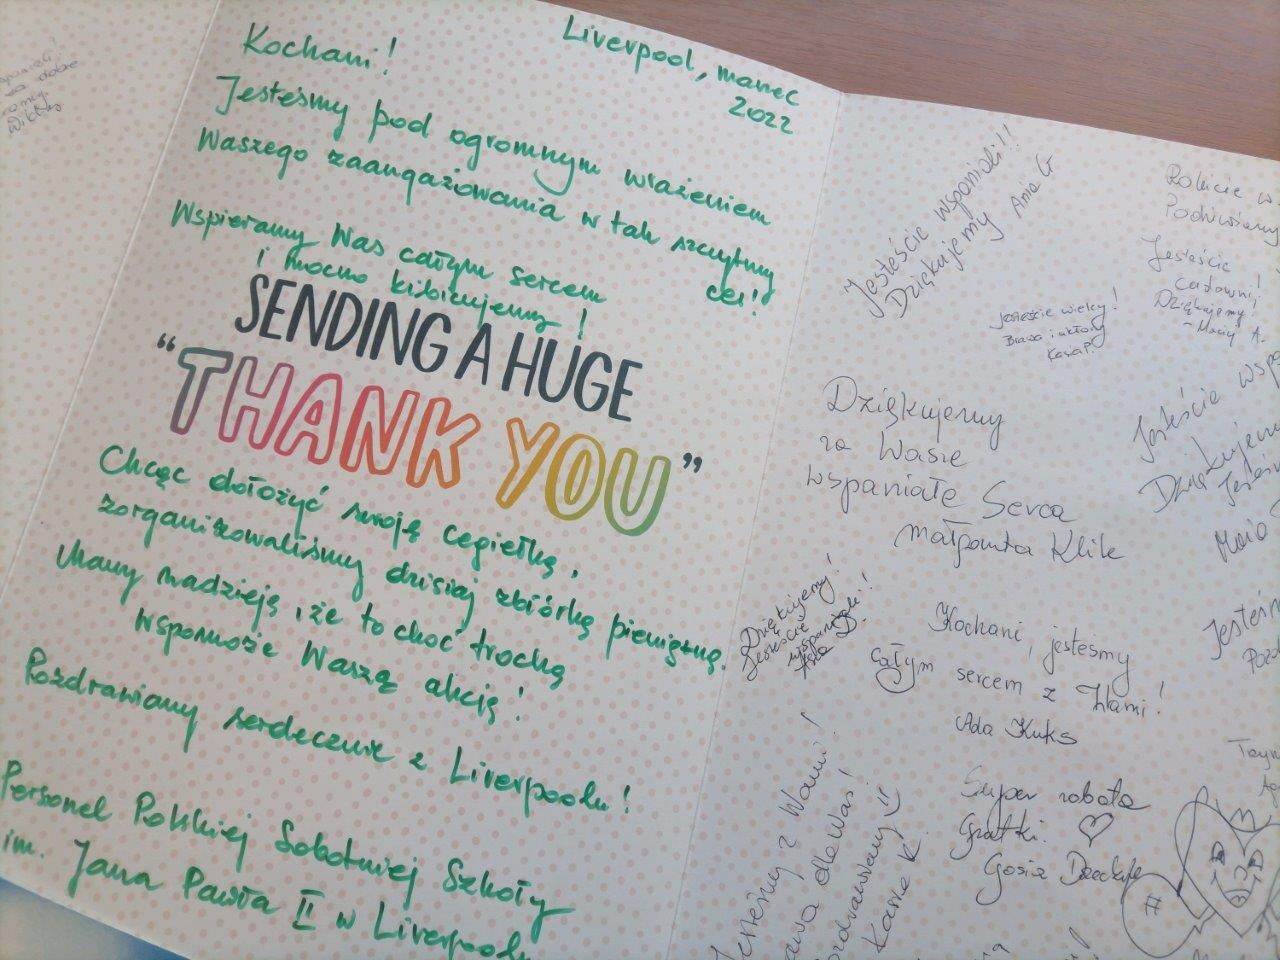 Liverpool, marzec
2022
Kochani!
Jesteśmy pod ogromnym wrażeniem
Waszego zaangażowania w tak szczytny
cel!
Wspieramy Was całym sercem
i mocno kibicujemy!
SENDING A HUGE
"THANK YOU"
Chcąc dołożyć swoją cegiełkę,
zorganizowaliśmy dzisiaj zbiórkę pieniężną.
Mamy nadzieję, że to choć trochę
wspomoże Waszą akcję!
Pozdrawiamy serdecznie z Liverpoolu!
Personel Polskiej Sobotniej Szkoły
im. Jana Pawła II w Liverpoolu
Jesteście wspaniali!!
Dziękujemy Ania G
Robicie
Podziwiamy
Jesteście
cudowni!
Dziękujemy!
~ Maciej A.
Jesteście wielcy!
Brawa i ukłony
Kasia P.
Dziękujemy
za Wasze
wspaniałe Serca
Małgonta Klik
Jesteście
Dziękujemy
Dziękujemy!
Jesteście
wspaniali!!
Kochani, jesteśmy
całym sercem z Wami!
Ada Kuks
Super robota
Gratki. ♡
Gosia
Jesteśmy z Wami!
dla Was!
Pozdrawiamy